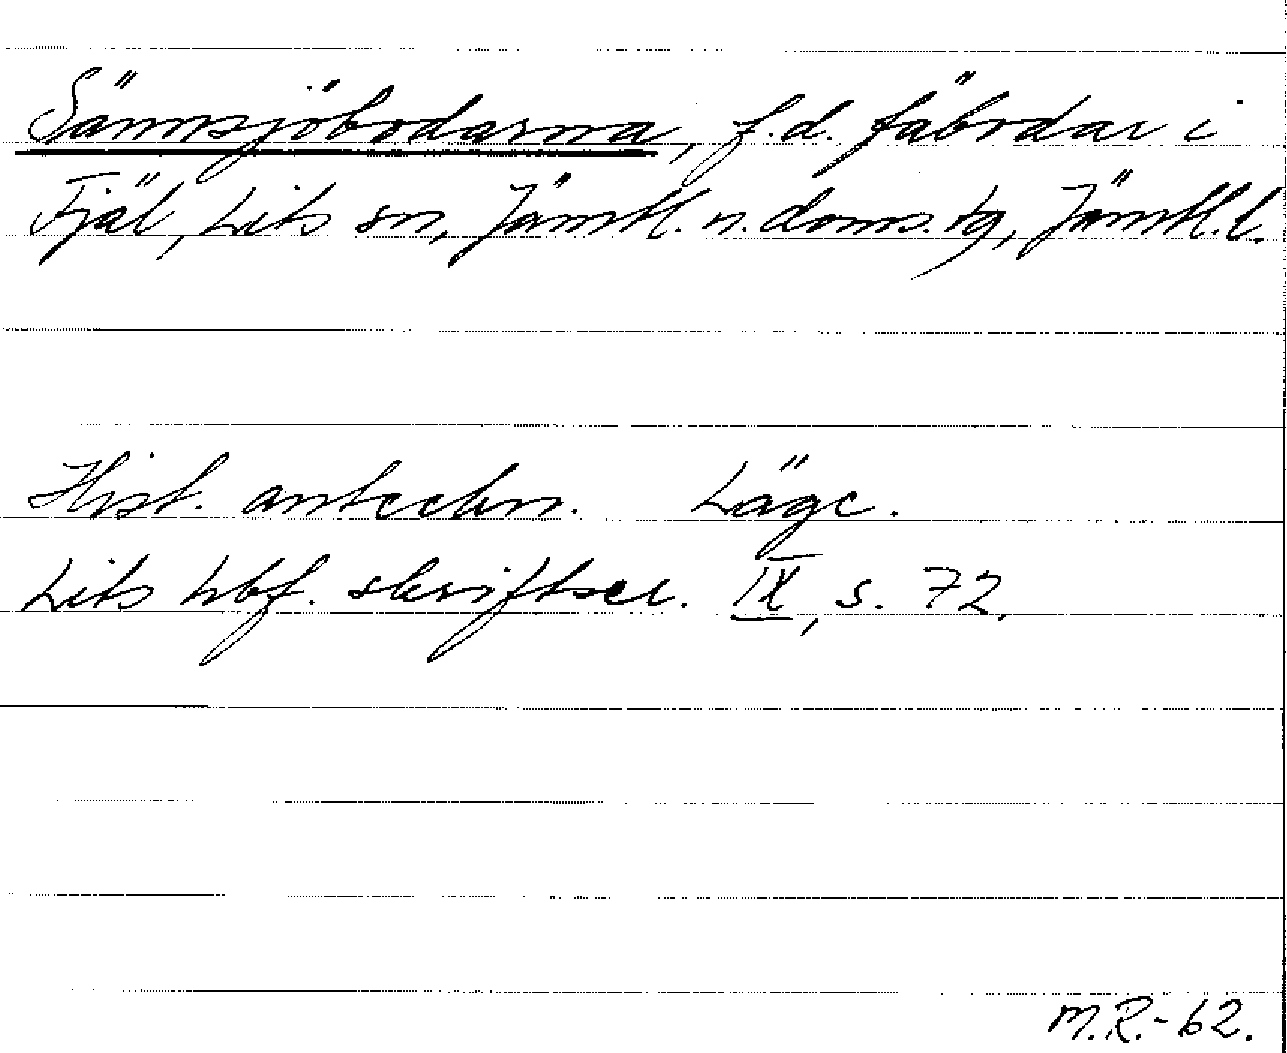 Sännsjöbodarna, f.d. fäbodar i
Fjäl, Lits sn, Jämtl. n. doms. tg, Jämtl. l.
Hist. anteckn. Läge.
Lits hbf. skriftser. IX, s. 72.
M.R.-62.